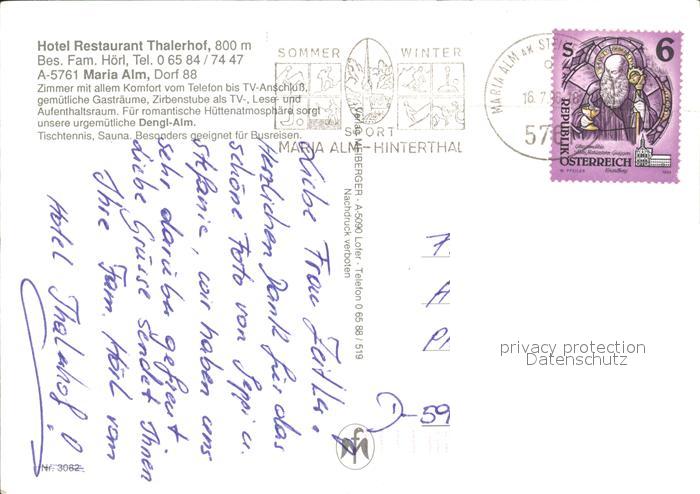 Hotel Restaurant Thalerhof, 800 m
Bes. Fam. Hörl, Tel. 0 65 84 / 74 47
A-5761 Maria Alm, Dorf 88
Zimmer mit allem Komfort vom Telefon bis TV-Anschluß,
gemütliche Gasträume, Zirbenstube als TV-, Lese- und
Aufenthaltsraum. Für romantische Hüttenatmosphäre sorgt
unsere urgemütliche Dengl-Alm.
Tischtennis, Sauna. Besonders geeignet für Busreisen.
SOMMER WINTER
SPORT
MARIA ALM-HINTERTHAL
MARIA ALM AM
16.7.96
576
S 6
REPUBLIK
ÖSTERREICH
Verlag MEIBERGER · A-5090 Lofer · Telefon 0 65 88 / 519
Nachdruck verboten
Liebe Frau
Herzlichen Dank für das
schöne Foto von Seppi u.
Stefanie, wir haben uns
sehr darüber gefreut
Liebe Grüsse sendet Ihnen
Ihre Fam. Hörl vom
Hotel Thalerhof
59
Nr. 3082
privacy protection
Datenschutz